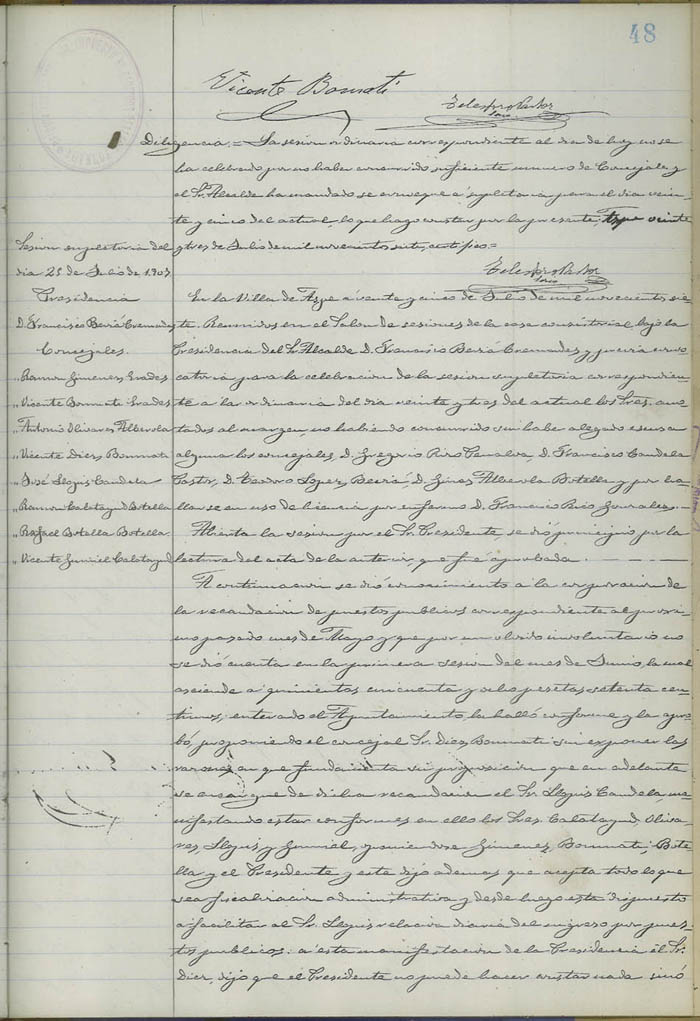 48
Vicente Bonmati
Telesforo Pastor
Srio
Diligencia = La sesion ordinaria correspondiente al dia de hoy no se
ha celebrado por no haber concurrido suficiente numero de Concejales y
el Sr. Alcalde ha mandado se convoque a supletoria para el dia vein-
te y cinco del actual, lo que hago constar por la presente, Aspe veinte
y tres de Julio de mil novecientos siete, certifico =
Telesforo Pastor
Srio
Sesion supletoria del
dia 25 de Julio de 1907
Presidencia
D. Francisco Beviá Cremades
Concejales.
" Ramon Gimenez Prades
" Vicente Bonmati Prades
" Antonio Olivares Alberola
" Vicente Diez Bonmati
" José Llopis Candela
" Ramon Calatayud Botella
" Rafael Botella Botella
" Vicente Gumiel Calatayud
En la Villa de Aspe a veinte y cinco de Julio de mil novecientos sie-
te. Reunidos en el Salon de sesiones de la casa consistorial, bajo la
Presidencia del Sr. Alcalde D. Francisco Beviá Cremades y previa convo-
catoria para la celebracion de la sesion supletoria correspondien-
te a la ordinaria del dia veinte y tres del actual los Sres. ano-
tados al margen, no habiendo concurrido sin haber alegado escusa
alguna los concejales, D. Gregorio Piro Penalva, D. Francisco Candela
Pastor, D. Teodoro Lopez Beviá, D. Gines Alberola Botella y por ha-
llarse en uso de licencia por enfermo D. Francisco Rico Gonzalez.
Abierta la sesion por el Sr. Presidente, se dió principio por la
lectura del acta de la anterior que fué aprobada.
A continuacion se dió conocimiento a la corporacion de
la recaudacion de puestos publicos correspondiente al proxi-
mo pasado mes de Mayo y que por un olvido involuntario no
se dió cuenta en la primera sesion del mes de Junio, la cual
asciende a quinientos cincuenta y ocho pesetas setenta cen-
timos; enterado el Ayuntamiento la halló conforme y la apro-
bó, proponiendo el concejal Sr. Diez Bonmati sin exponer las
razones en que fundamenta su proposicion que en adelante
se encargue de dicha recaudacion el Sr. Llopis Candela, ma-
nifestando estar conformes en ello los Sres. Calatayud, Oliva-
res, Llopis y Gumiel, oponiendose Gimenez, Bonmati, Bote-
lla y el Presidente y este dijo ademas que acepta todo lo que
sea fiscalizacion administrativa y desde luego está dispuesto
a facilitar al Sr. Llopis relacion diaria del ingreso por pues-
tos publicos: a esta manifestacion de la Presidencia el Sr.
Diez, dijo que el Presidente no puede hacer constar nada sinó